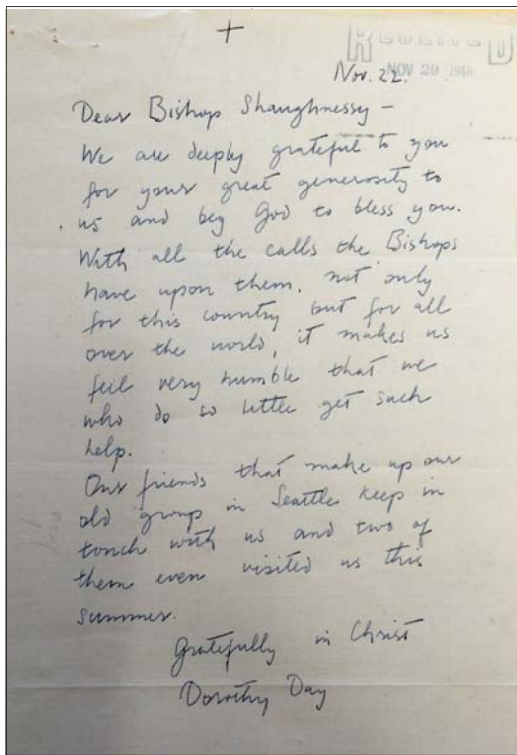 +
RECEIVED
Nov. 22.
NOV 29 1946
Dear Bishop Shaughnessy –
We are deeply grateful to you
for your great generosity to
us and beg God to bless you.
With all the calls the Bishops
have upon them, not only
for this country but for all
over the world, it makes us
feel very humble that we
who do so little get such
help.
Our friends that make up our
old group in Seattle keep in
touch with us and two of
them even visited us this
summer.
Gratefully in Christ
Dorothy Day